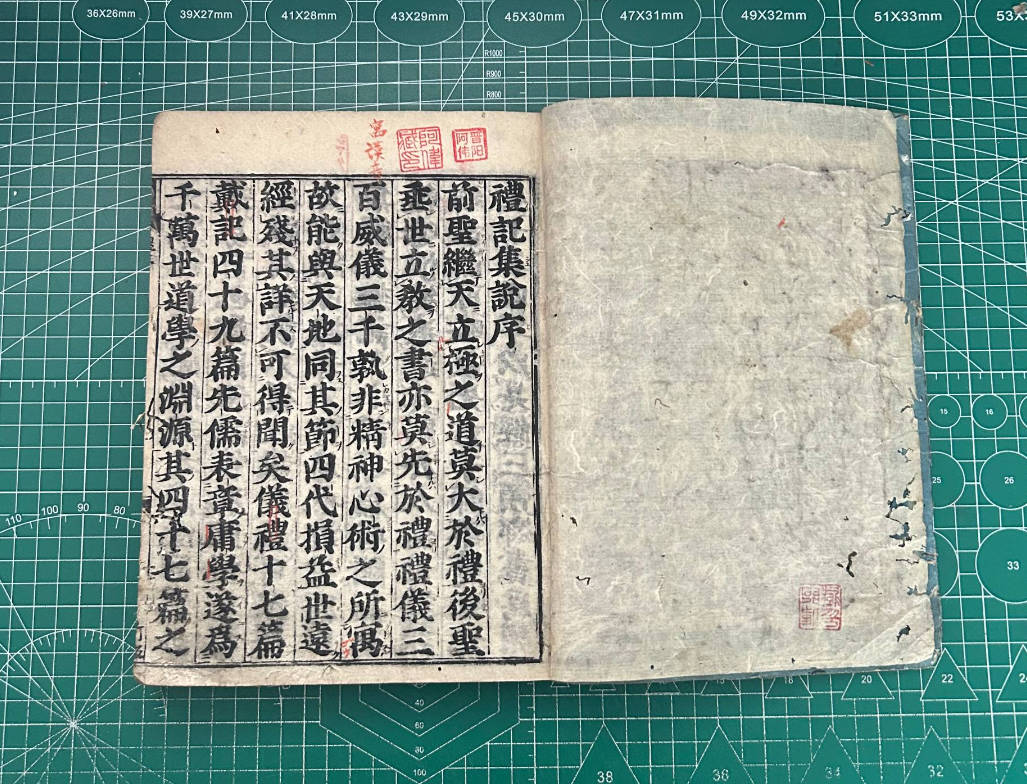 禮記集說序
前聖繼天立極之道莫大於禮後聖
垂世立教之書亦莫先於禮禮儀三
百威儀三千孰非精神心術之所寓
故能與天地同其節四代損益世遠
經殘其詳不可得聞矣儀禮十七篇
戴記四十九篇先儒表章庸學遂爲
千萬世道學之淵源其四十七篇之
晋阳
阿偉
阿偉
藏印
36X26mm
39X27mm
41X28mm
43X29mm
45X30mm
47X31mm
49X32mm
51X33mm
R1000
R900
R800
110
100
90
80
15
16
25
26
33
16
18
20
22
24
40
60
80
100
38
36
34
32